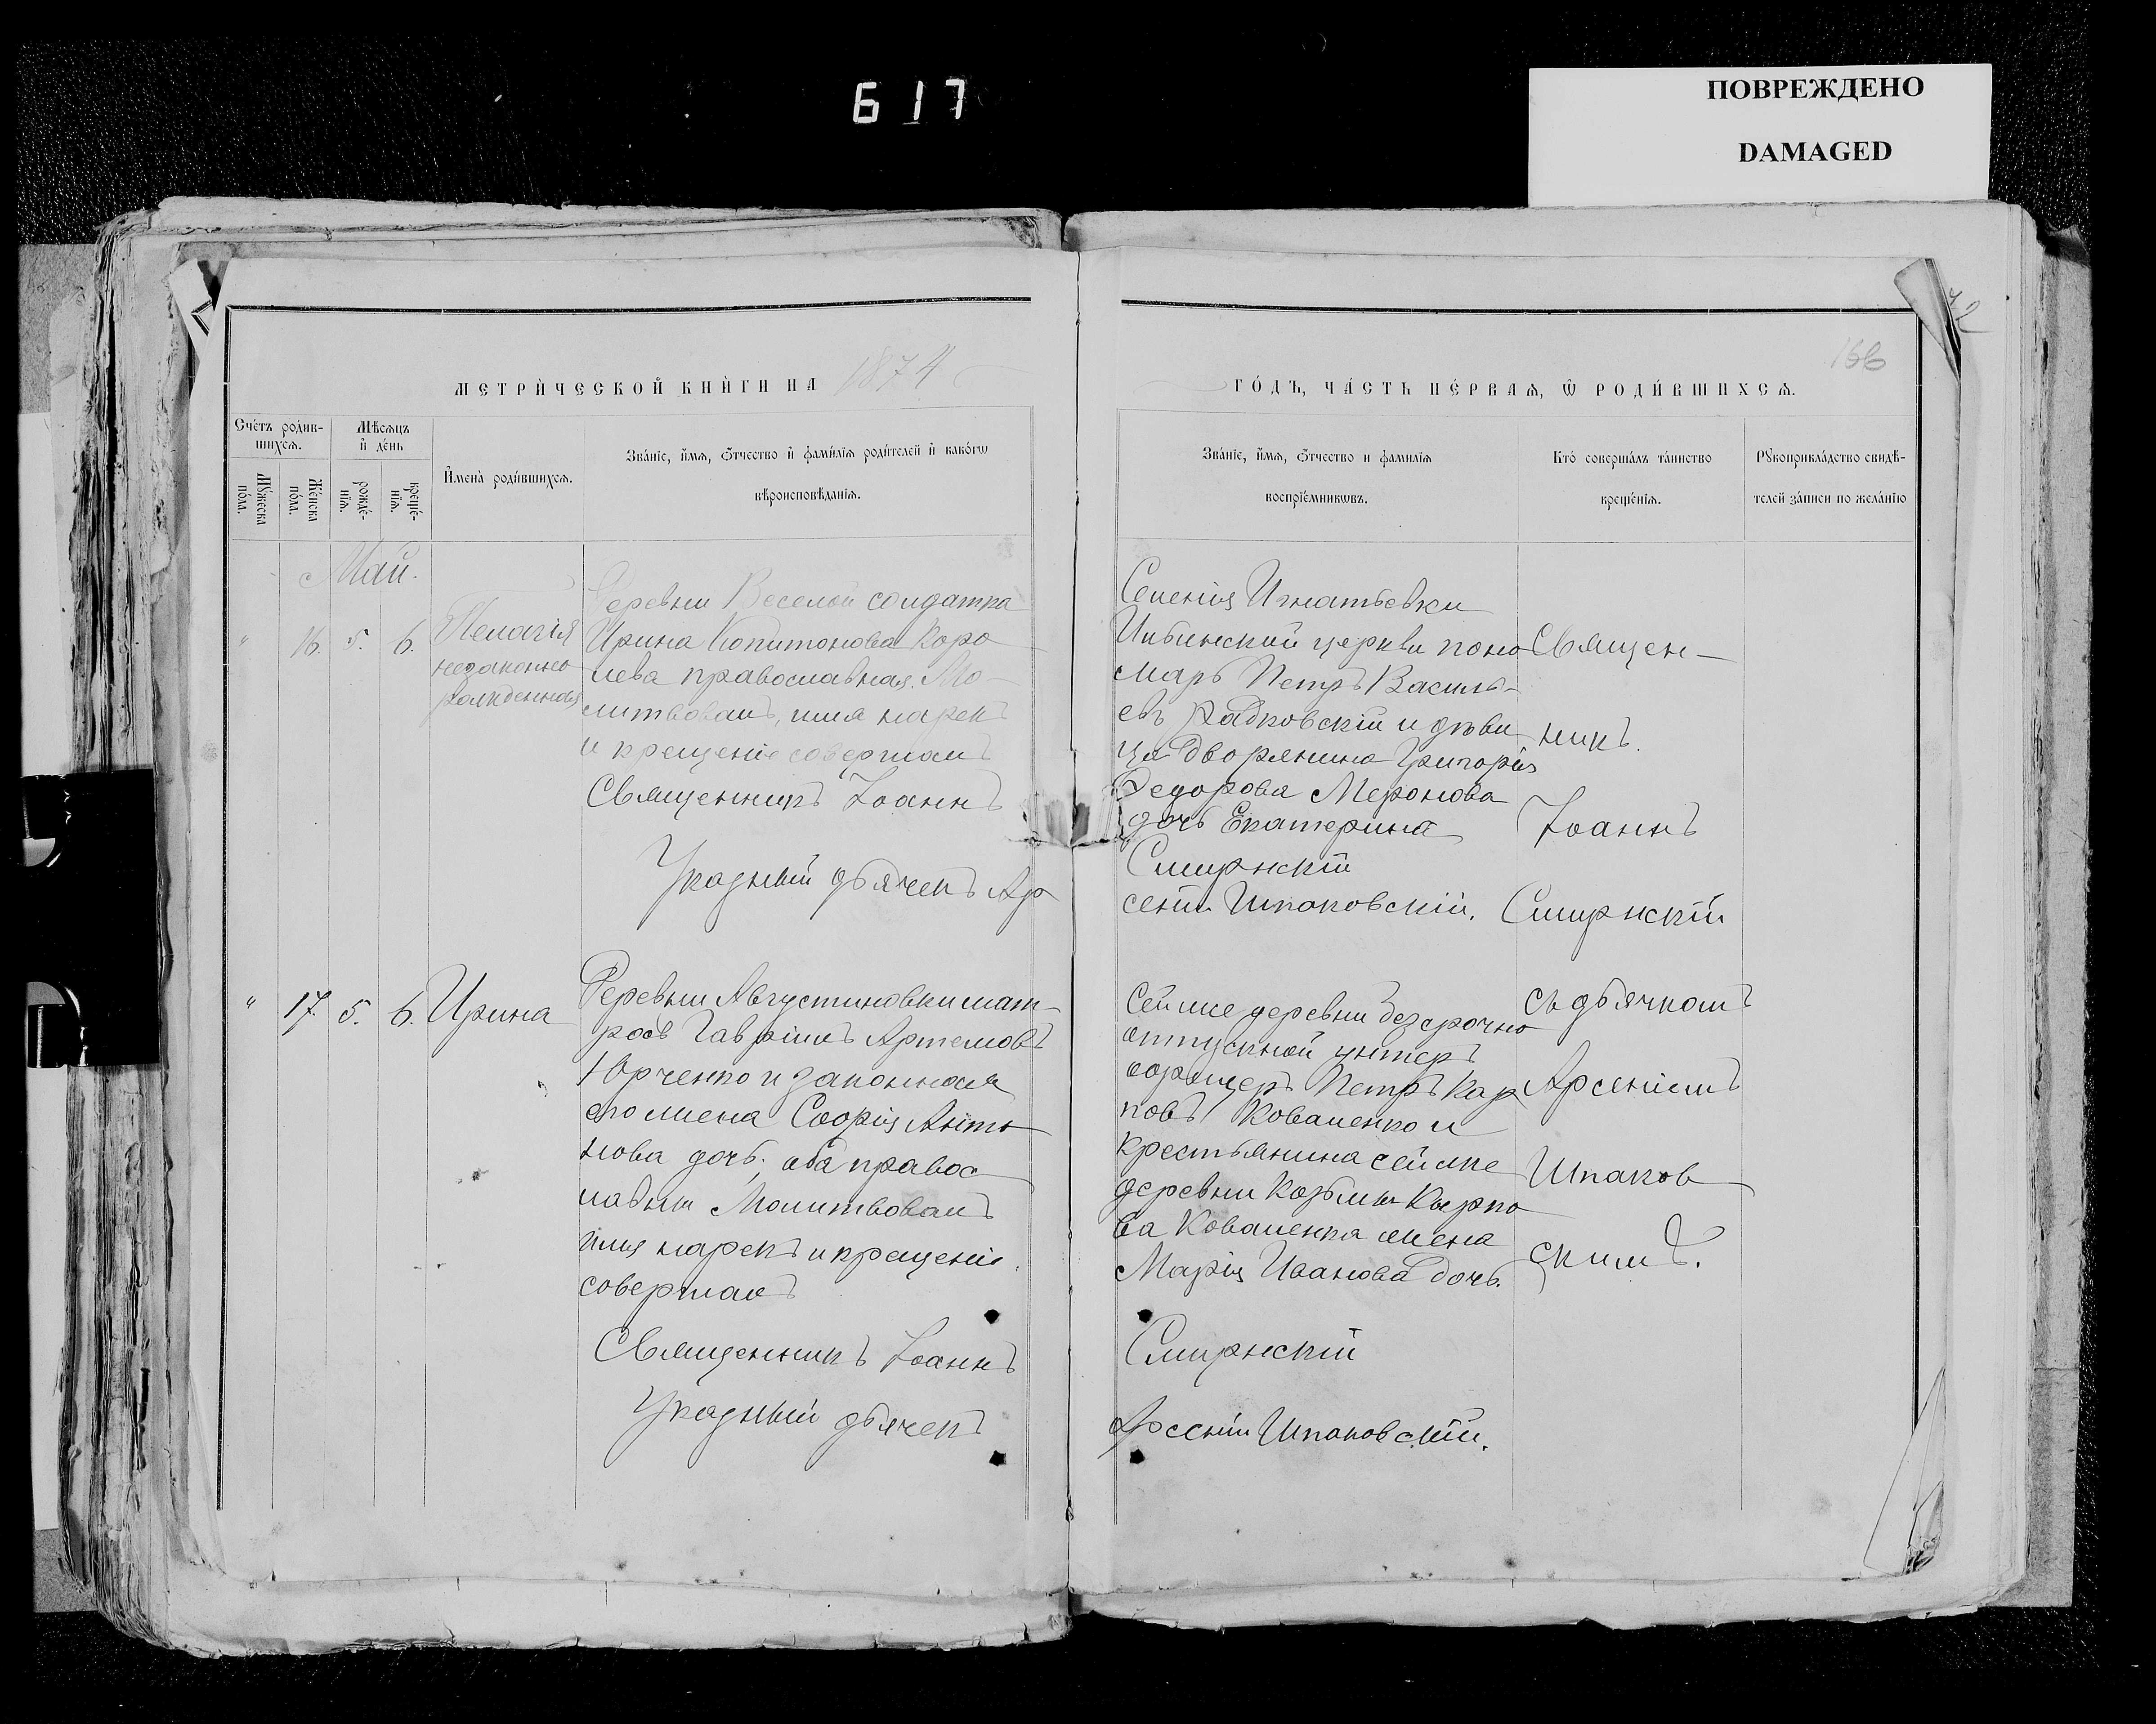 617
ПОВРЕЖДЕНО
DAMAGED
72
166
МЕТРИ́ЧЕСКОЙ КНИ́ГИ НА 1874
ГО́ДЪ, ЧА́СТЬ ПЕ́РВАѦ, Ѿ РОДИ́ВШИХСѦ.
Сче́тъ роди́в-
шихсѧ.
Мꙋ́жеска
по́ла.
Же́нска
по́ла.
Мѣ́сѧцъ
и҆ де́нь
рожде́-
нїѧ.
креще́-
нїѧ.
И҆мена̀ роди́вшихсѧ.
Зва́нїе, и҆́мѧ, ѻ҆́тчество и҆ фами́лїѧ роди́телей и҆ како́гѡ
вѣроисповѣ́данїѧ.
Зва́нїе, и҆́мѧ, ѻ҆́тчество и фами́лїѧ
воспрїе́мникѡвъ.
Кто̀ соверша́лъ та́инство
креще́нїѧ.
Рꙋкоприкла́дство свидѣ́-
телей за́писи по жела́нїю
Май.
" 16. 5. 6.
Пелагія
незаконно
рожденная
Деревни Веселой солдатка
Ирина Копитонова Коро
лева православная. Мо-
литвовалъ, имя нарекъ
и крещеніе совершалъ
Священникъ Іоаннъ
Указный дьячекъ Ар
Селенія Игнатьевки
церкви поно
марь Петръ Василь-
евъ Радковскій и дѣви
ца дворянина Григорія
Федорова Меронова
дочь Екатерина
Смирнскій
сеній Шпаковскій.
Священ-
никъ.
Іоаннъ
Смирнскій
" 17. 5. 6. Ирина
Деревни Августиновки мат-
росъ Гавріилъ Артемовъ
Юрченко и законная
его жена Софія Анто
нова дочь, оба правос
лавны Молитвовалъ
имя нарекъ и крещеніе
совершалъ
Священникъ Іоаннъ
Указный дьячекъ
Сей же деревни безсрочно
отпускной унтеръ
офицеръ Петръ Кар
повъ Коваленко и
крестьянина сей же
деревни Козьмы Карпо
ва Коваленка жена
Марія Иванова дочь.
Смирнскій
Арсеній Шпаковскій.
съ дьячкомъ
Арсеніемъ
Шпаков
скимъ.